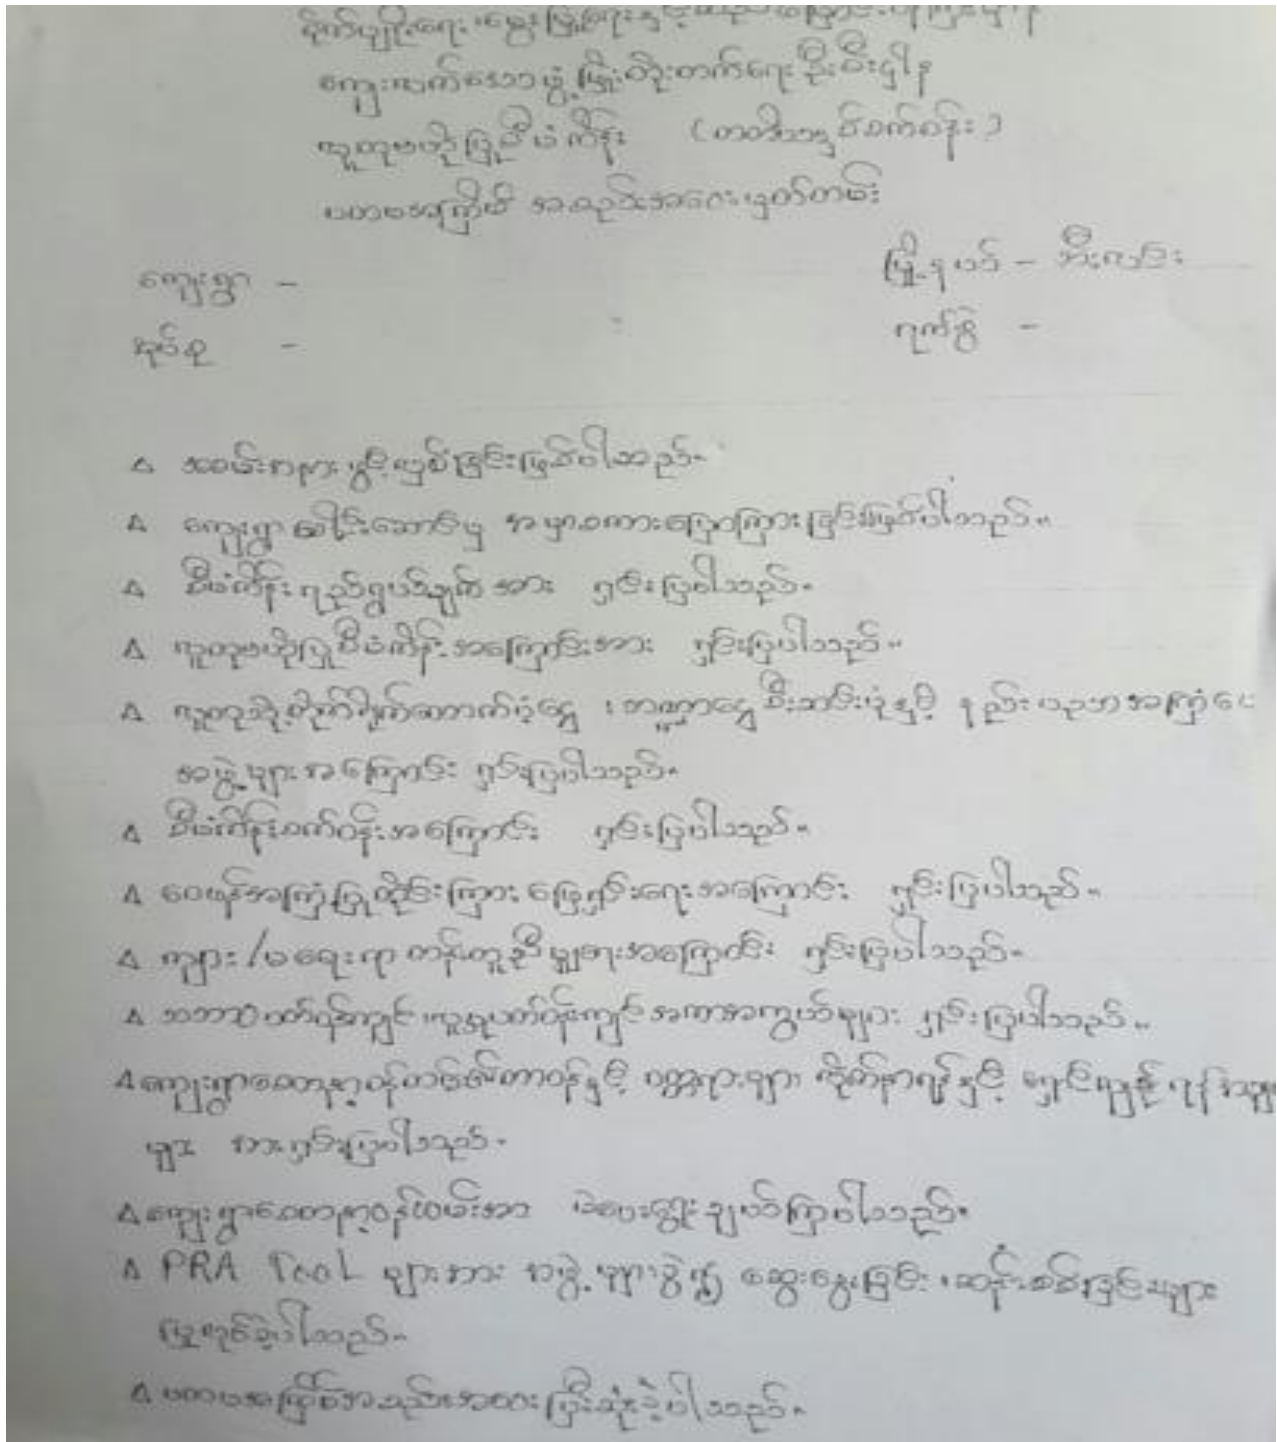 စိုက်ပျိုးရေး၊ မွေးမြူရေးနှင့်ဆည်မြောင်းဝန်ကြီးဌာန
ကျေးလက်ဒေသဖွံ့ဖြိုးတိုးတက်ရေးဦးစီးဌာန
လူထုဗဟိုပြုစီမံကိန်း (တတိယနှစ်စက်ဝန်း)
ပထမအကြိမ် အစည်းအဝေးမှတ်တမ်း
မြို့နယ် - ဘီးလင်း
ကျေးရွာ -
ရက်စွဲ -
အုပ်စု -
Δ အခမ်းအနားဖွင့်လှစ်ခြင်းဖြစ်ပါသည်။
Δ ကျေးရွာခေါင်းဆောင်မှ အမှာစကားပြောကြားခြင်းဖြစ်ပါသည်။
Δ စီမံကိန်းရည်ရွယ်ချက်အား ရှင်းပြပါသည်။
Δ လူထုဗဟိုပြုစီမံကိန်းအကြောင်းအား ရှင်းပြပါသည်။
Δ လူထုသို့စိုက်ရိုက်ထောက်ပံ့ငွေ၊ ဘဏ္ဍာငွေစီးဆင်းပုံနှင့် နည်းပညာအကြံပေး
အဖွဲ့များအကြောင်း ရှင်းပြပါသည်။
Δ စီမံကိန်းစက်ဝန်းအကြောင်း ရှင်းပြပါသည်။
Δ ဝေဖန်အကြံပြုတိုင်ကြားဖြေရှင်းရေးအကြောင်း ရှင်းပြပါသည်။
Δ ကျား/မရေးရာ တန်းတူညီမျှရေးအကြောင်း ရှင်းပြပါသည်။
Δ သဘာဝပတ်ဝန်းကျင်၊ လူမှုပတ်ဝန်းကျင်အကာအကွယ်များ ရှင်းပြပါသည်။
Δ ကျေးရွာစေတနာ့ဝန်ထမ်း၏တာဝန်နှင့် ဝတ္တရားများ လိုက်နာရန်နှင့် ရှောင်ကျဉ်ရန်အချက်
များ အားရှင်းပြပါသည်။
Δ ကျေးရွာစေတနာ့ဝန်ထမ်းအား မဲပေးရွေးချယ်ကြပါသည်။
Δ PRA Tool များအား အဖွဲ့များခွဲ၍ ဆွေးနွေးခြင်း၊ ဆန်းစစ်ခြင်းများ
ပြုလုပ်ခဲ့ပါသည်။
Δ ပထမအကြိမ်အစည်းအဝေး ပြီးဆုံးခဲ့ပါသည်။